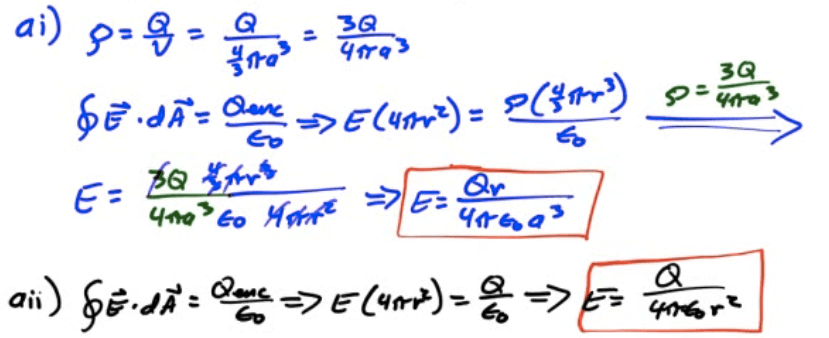 ai) ρ = Q/V = Q/(4/3 πa³) = 3Q/(4πa³)
∮E⃗·dA⃗ = Qenc/ε₀ => E(4πr²) = ρ(4/3 πr³)/ε₀ ρ = 3Q/(4πa³) ⟹
E = 3Q 4/3 πr³ / (4πa³ ε₀ 4πr²) => E = Qr/(4πε₀a³)
aii) ∮E⃗·dA⃗ = Qenc/ε₀ => E(4πr²) = Q/ε₀ => E = Q/(4πε₀r²)